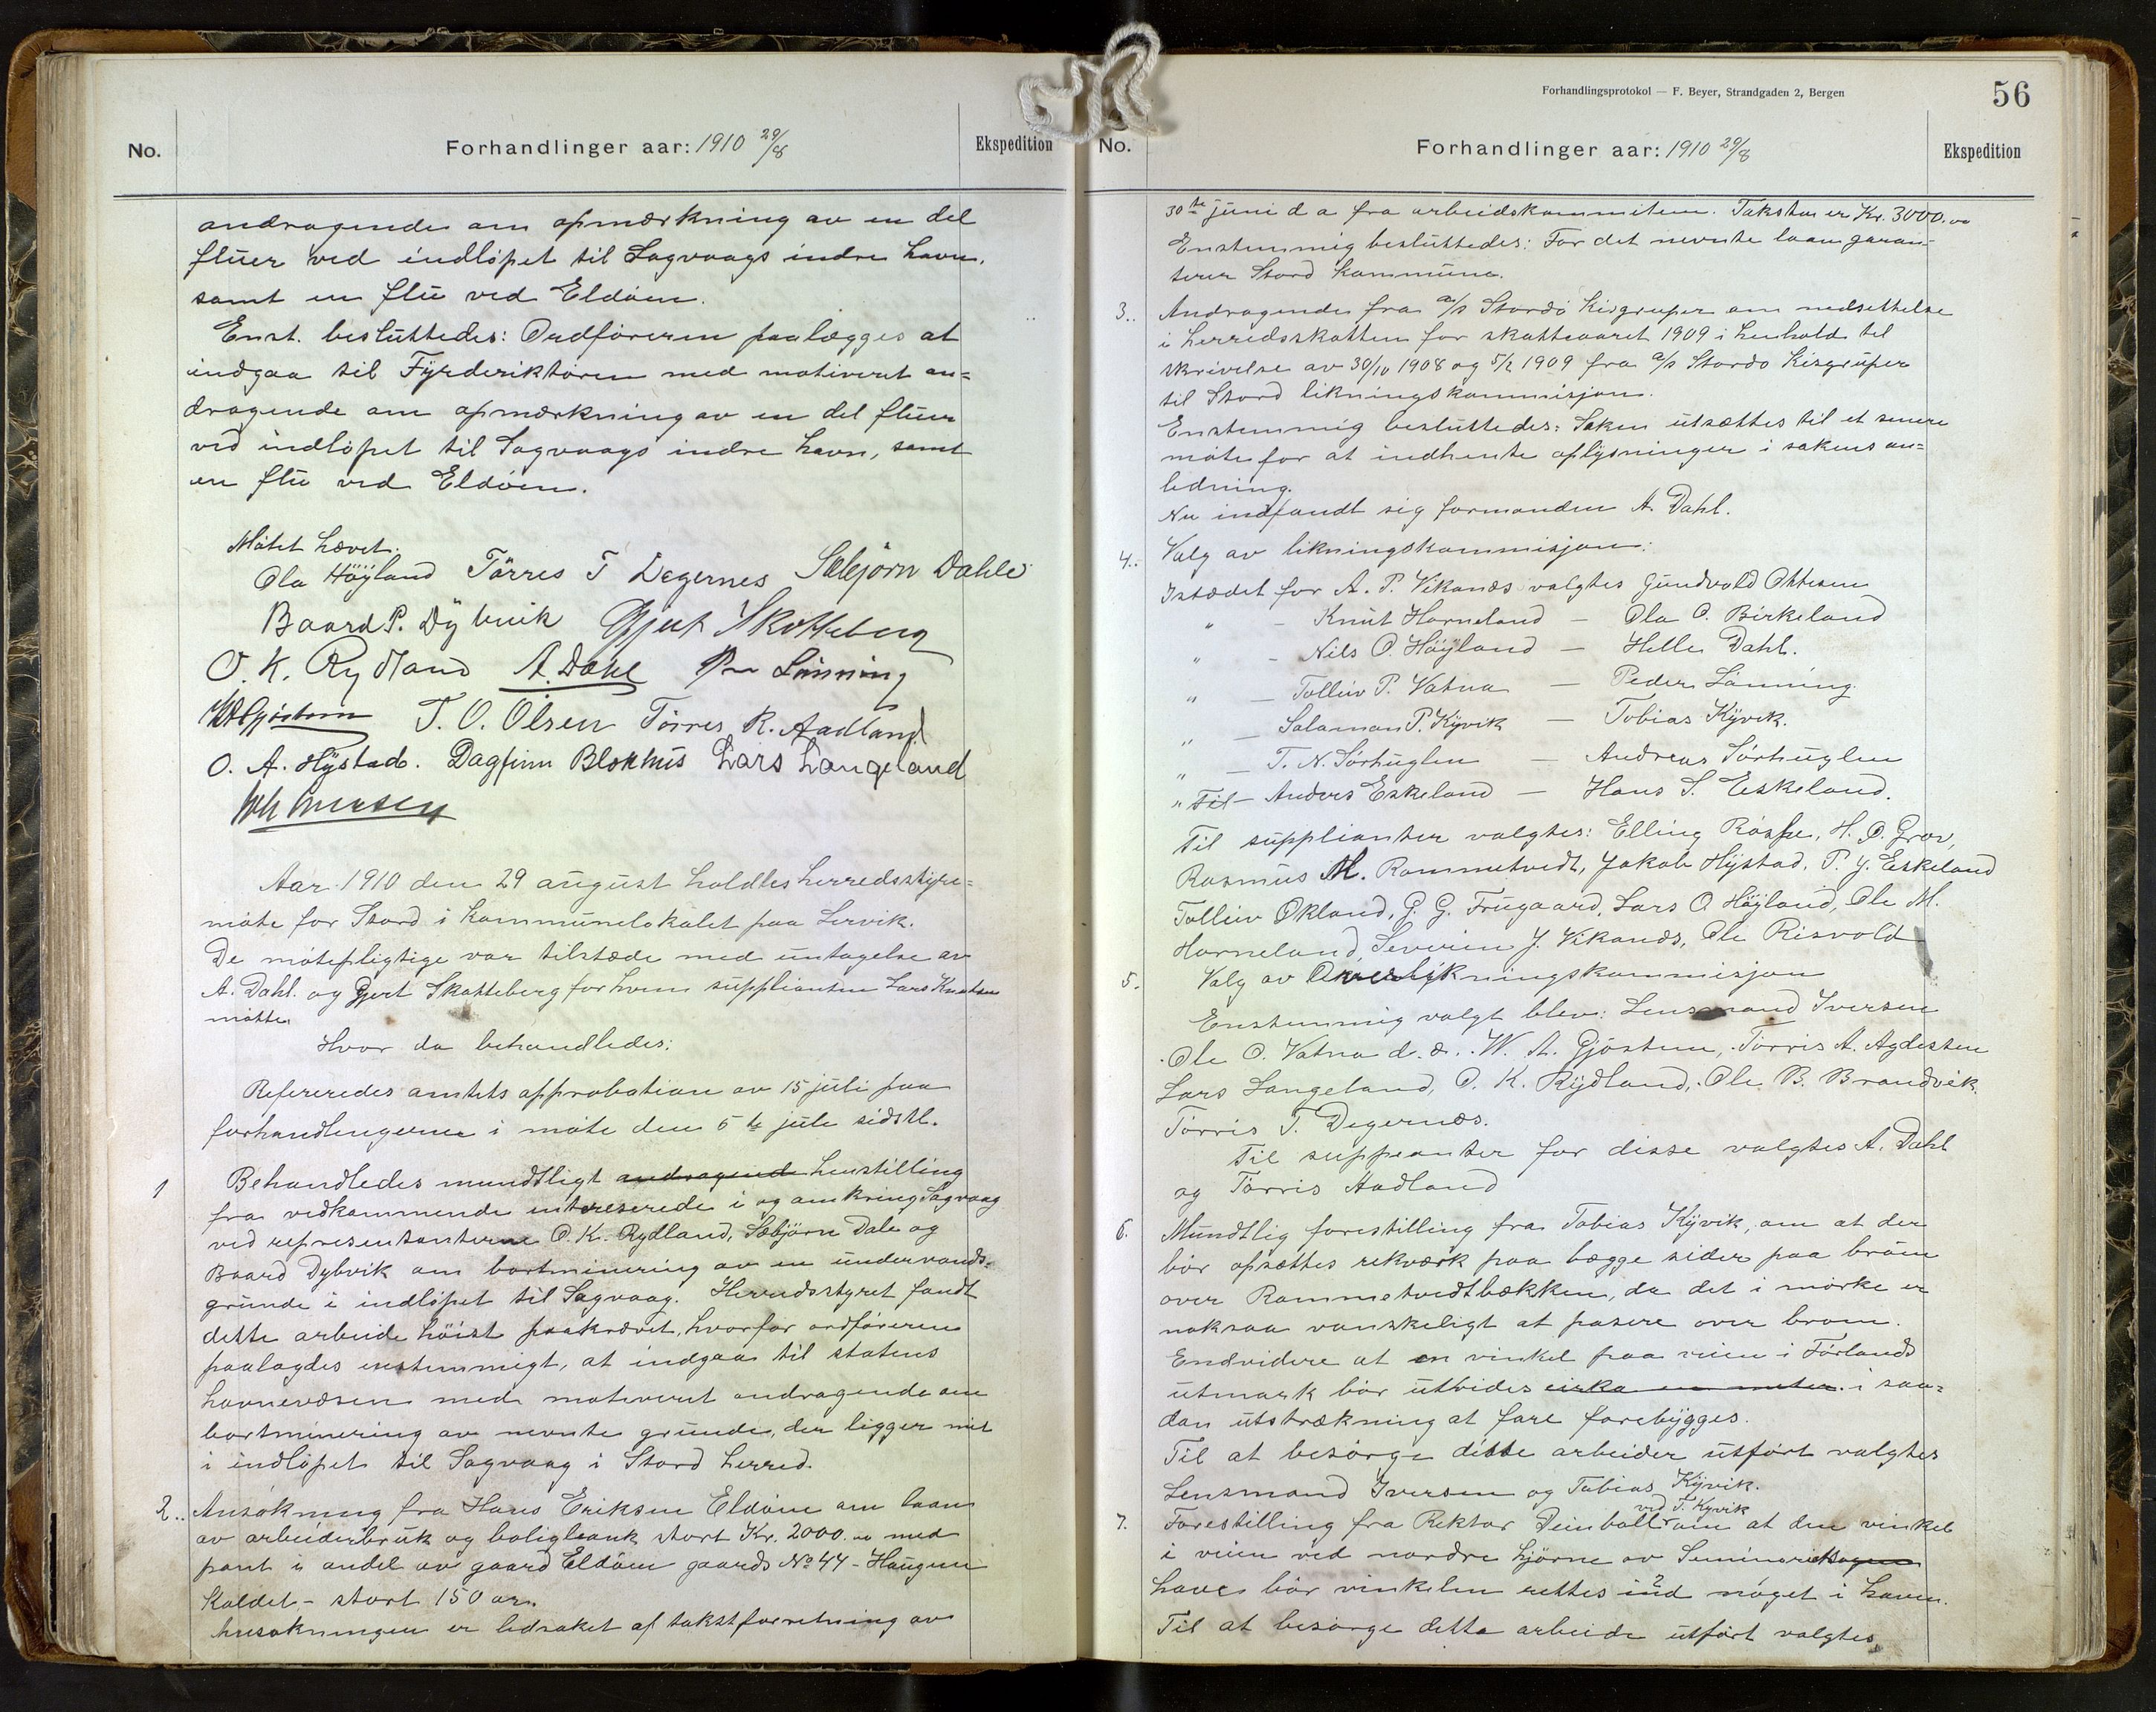 No.
Forhandlinger aar: 1910 29/8
Ekspedition
andragende om opmærkning av en del
fluer ved indløpet til Sagvaags indre havn,
samt en flu ved Eldøen.
Enst. besluttedes: Ordføreren paalægges at
indgaa til Fyrderiktøren med motiveret an=
dragende om opmærkning av en del fluer
ved indløpet til Sagvaags indre havn, samt
en flu ved Eldøen.
Møtet hævet.
Ola Høyland Tørres T Degernes Sæbjørn Dahle
Baard P. Dybvik Gjert Skotteberg
O. K. Rydland A. Dahl Per Lønning
WAGjøstein T. O. Olsen Tørres R. Aadland
O. A. Hystad. Dagfinn Blokhus Lars Langeland
Joh Iversen
Aar 1910 den 29 august holdtes herredsstyre=
møte for Stord i kommunelokalet paa Lervik.
De møtepligtige var tilstæde med untagelse av
A. Dahl. og Gjert Skotteberg for hvem supplianten Lars Knutsen
møtte.
Hvor da behandledes:
Refereredes amtets approbation av 15 juli paa
forhandlingerne i møte den 5te juli sidstl.
1 Behandledes mundtligt andragende henstilling
fra vedkommende intereserede i og omkring Sagvaag
ved representanterne O. K. Rydland, Sæbjørn Dale og
Baard Dybvik om bortminering av en undervands=
grunde i indløpet til Sagvaag. Herredsstyret fandt
dette arbeide høist paakrævet, hvorfor ordføreren
paalagdes enstemmigt, at indgaa til statens
havnevæsen med motiveret andragende om
bortminering av nevnte grunde, der ligger mit
i indløpet til Sagvaag i Stord herred.
2.. Ansøkning fra Hans Eriksen Eldøen om laan
av arbeiderbruk og boligbank stort Kr. 2000.00 med
pant i andel av gaard Eldøen gaards No 44 - Haugen
kaldet - stort 150 ar.
Ansøkningen er ledsaket af takstforretning av
Forhandlingsprotokol — F. Beyer, Strandgaden 2, Bergen
56
No.
Forhandlinger aar: 1910 29/8
Ekspedition
30te juni d a fra arbeidskommiteen. Taksten er Kr. 3000.00
Enstemmig besluttedes: For det nevnte laan garan-
terer Stord kommune.
3.. Andragende fra a/s Stordø Kisgruper om nedsettelse
i herredsskatten for skatteaaret 1909 i henhold til
skrivelse av 30/10 1908 og 5/2 1909 fra a/s Stordø Kisgruper
til Stord likningskommisjon.
Enstemmig besluttedes: Saken utsættes til et senere
møte for at indhente oplysninger i sakens an=
ledning.
Nu indfandt sig formanden A. Dahl.
4.. Valg av likningskommisjon:
Istædet for A. P. Vikanæs valgtes Gundvold Ottesen
" - Knut Horneland - Ola O. Birkeland
" - Nils O. Høyland - Helle Dahl.
" - Tolleiv P. Vatna - Peder Lønning
" - Salamon P. Kyvik - Tobias Kyvik.
" - T. N. Sørhuglen - Andreas Sørhuglen
" Til - Anders Eskeland - Hans S. Eskeland.
Til supplianter valgtes: Elling Røsse, H. O. Grov,
Rasmus M. Rommetvedt, Jakob Hystad, P. J. Eskeland
Tolleiv Økland, G. G. Frugaard, Lars O Høyland, Ole M.
Horneland, Severin J. Vikanæs, Ole Risvold
5. Valg av Overlikningskommisjon
Enstemmig valgt blev: Lensmand Iversen
Ole O. Vatna d. æ. W. A. Gjøstein, Tørris A. Agdesten
Lars Langeland, O. K. Rydland, Ole B. Brandvik.
Tørris T. Degernæs.
Til suppeanter for disse valgtes A. Dahl
og Tørris Aadland
6. Mundtlig forestilling fra Tobias Kyvik, om at der
bør opsættes rekværk paa bægge sider paa broen
over Rommetvedtbækken, da det i mørke er
noksaa vanskeligt at pasere over broen.
Endvidere at en vinkel paa veien i Førlands
utmark bør utvides cirka en meter i saa=
dan utstrækning at fare forebygges.
Til at besørge disse arbeider utført valgtes
Lensmand Iversen og Tobias Kyvik.
7. Forestilling fra Rektor Deinboll ved T. Kyvik om at den vinkel
i veien ved nordre hjørne av Seminariets
have bør vinkelen rettes ind noget i haven.
Til at besørge dette arbeide utført valgtes